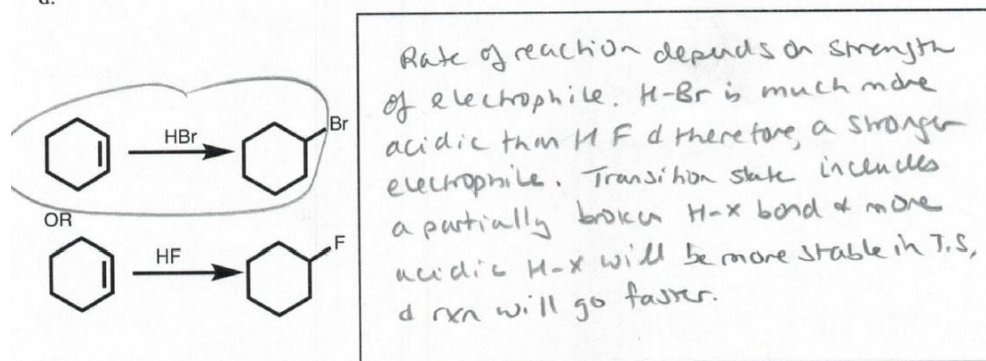 d.
HBr
Br
OR
HF
F
Rate of reaction depends on strength
of electrophile. H-Br is much more
acidic than HF & therefore, a stronger
electrophile. Transition state includes
a partially broken H-X bond & more
acidic H-X will be more stable in T.S,
& rxn will go faster.